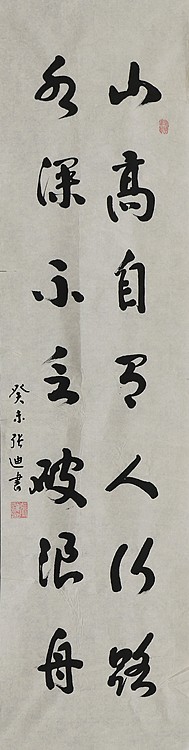 山高自有人行路
水深不乏破浪舟
癸未张迪書